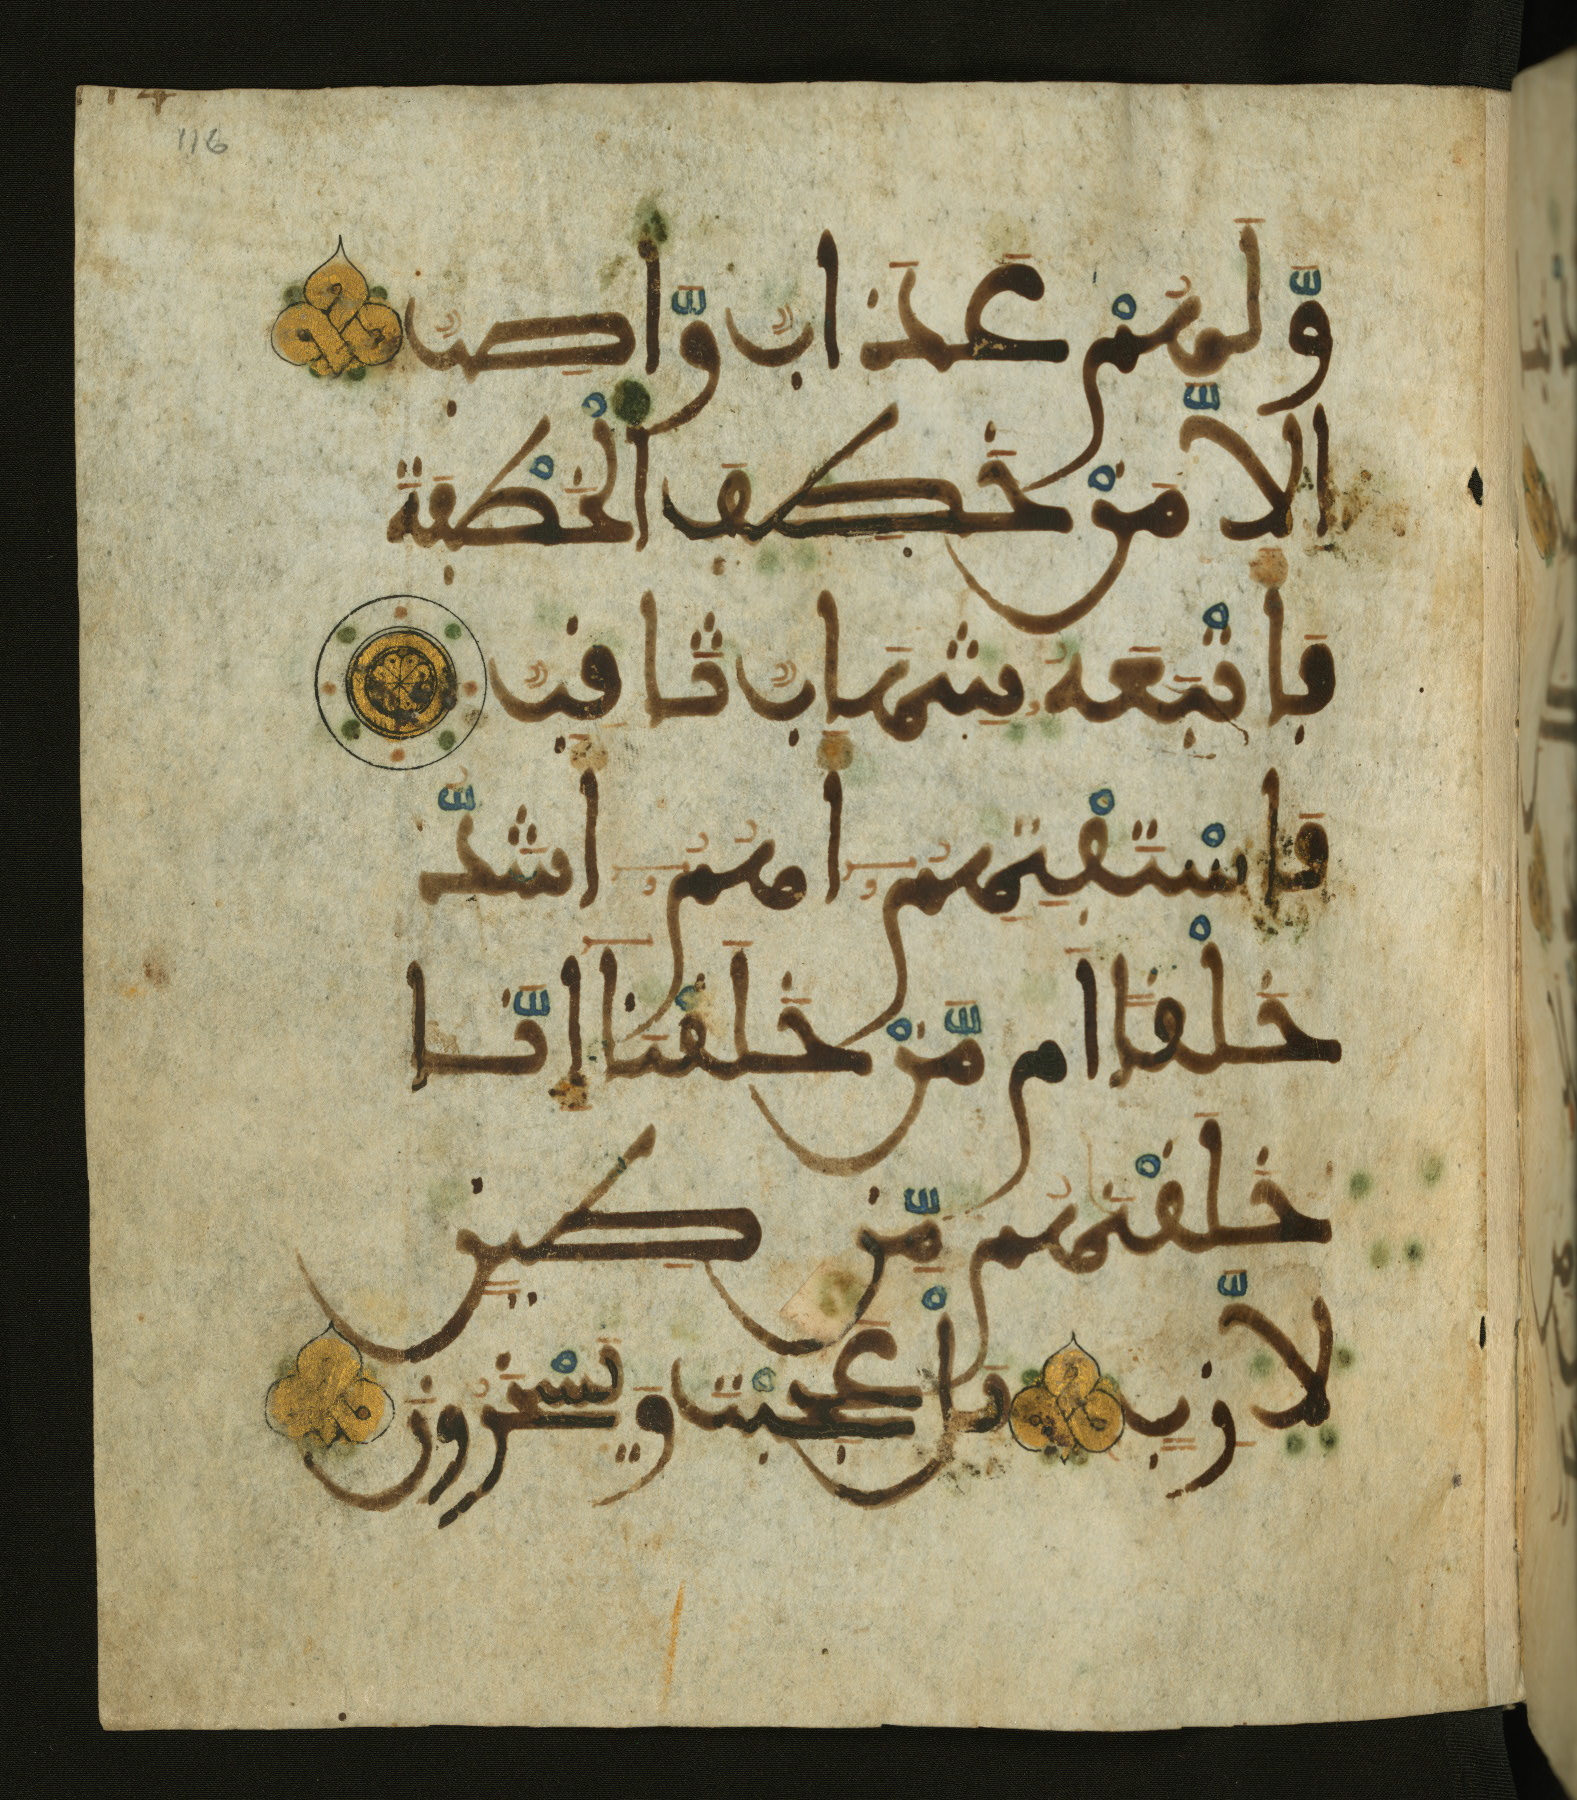 116
وَّلَهُمْ عَذَابٌ وَّاصِبٌ
اِلَّا مَنْ خَطِفَ الْخَطْفَةَ
فَأَتْبَعَهُ شِهَابٌ ثَاقِبٌ
فَاسْتَفْتِهِمُ أَهُمُ أَشَدُّ
خَلْقًا أَم مَّنْ خَلَقْنَا إِنَّا
خَلَقْنَهُم مِّن طِينٍ
لَّازِبٍ بَلْ عَجِبْتَ وَيَسْخَرُونَ